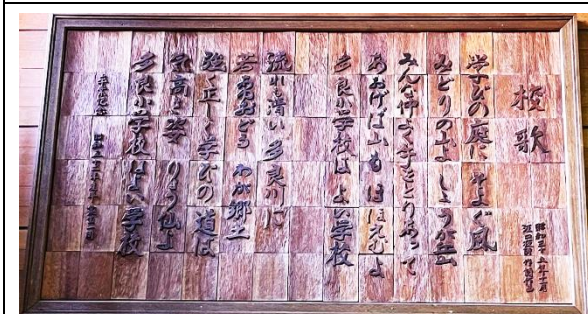 校歌
学びの庭に そよぐ風
みどりの山よ しょうが岳
みんな仲よく手をとりあって
あおげば山もほほえむよ
多良小学校は よい学校
流れも清い 多良川に
若あゆおどる わが郷土
強く正しく学びの道は
気高い姿 りょう仙よ
多良小学校はよい学校
卒業記念